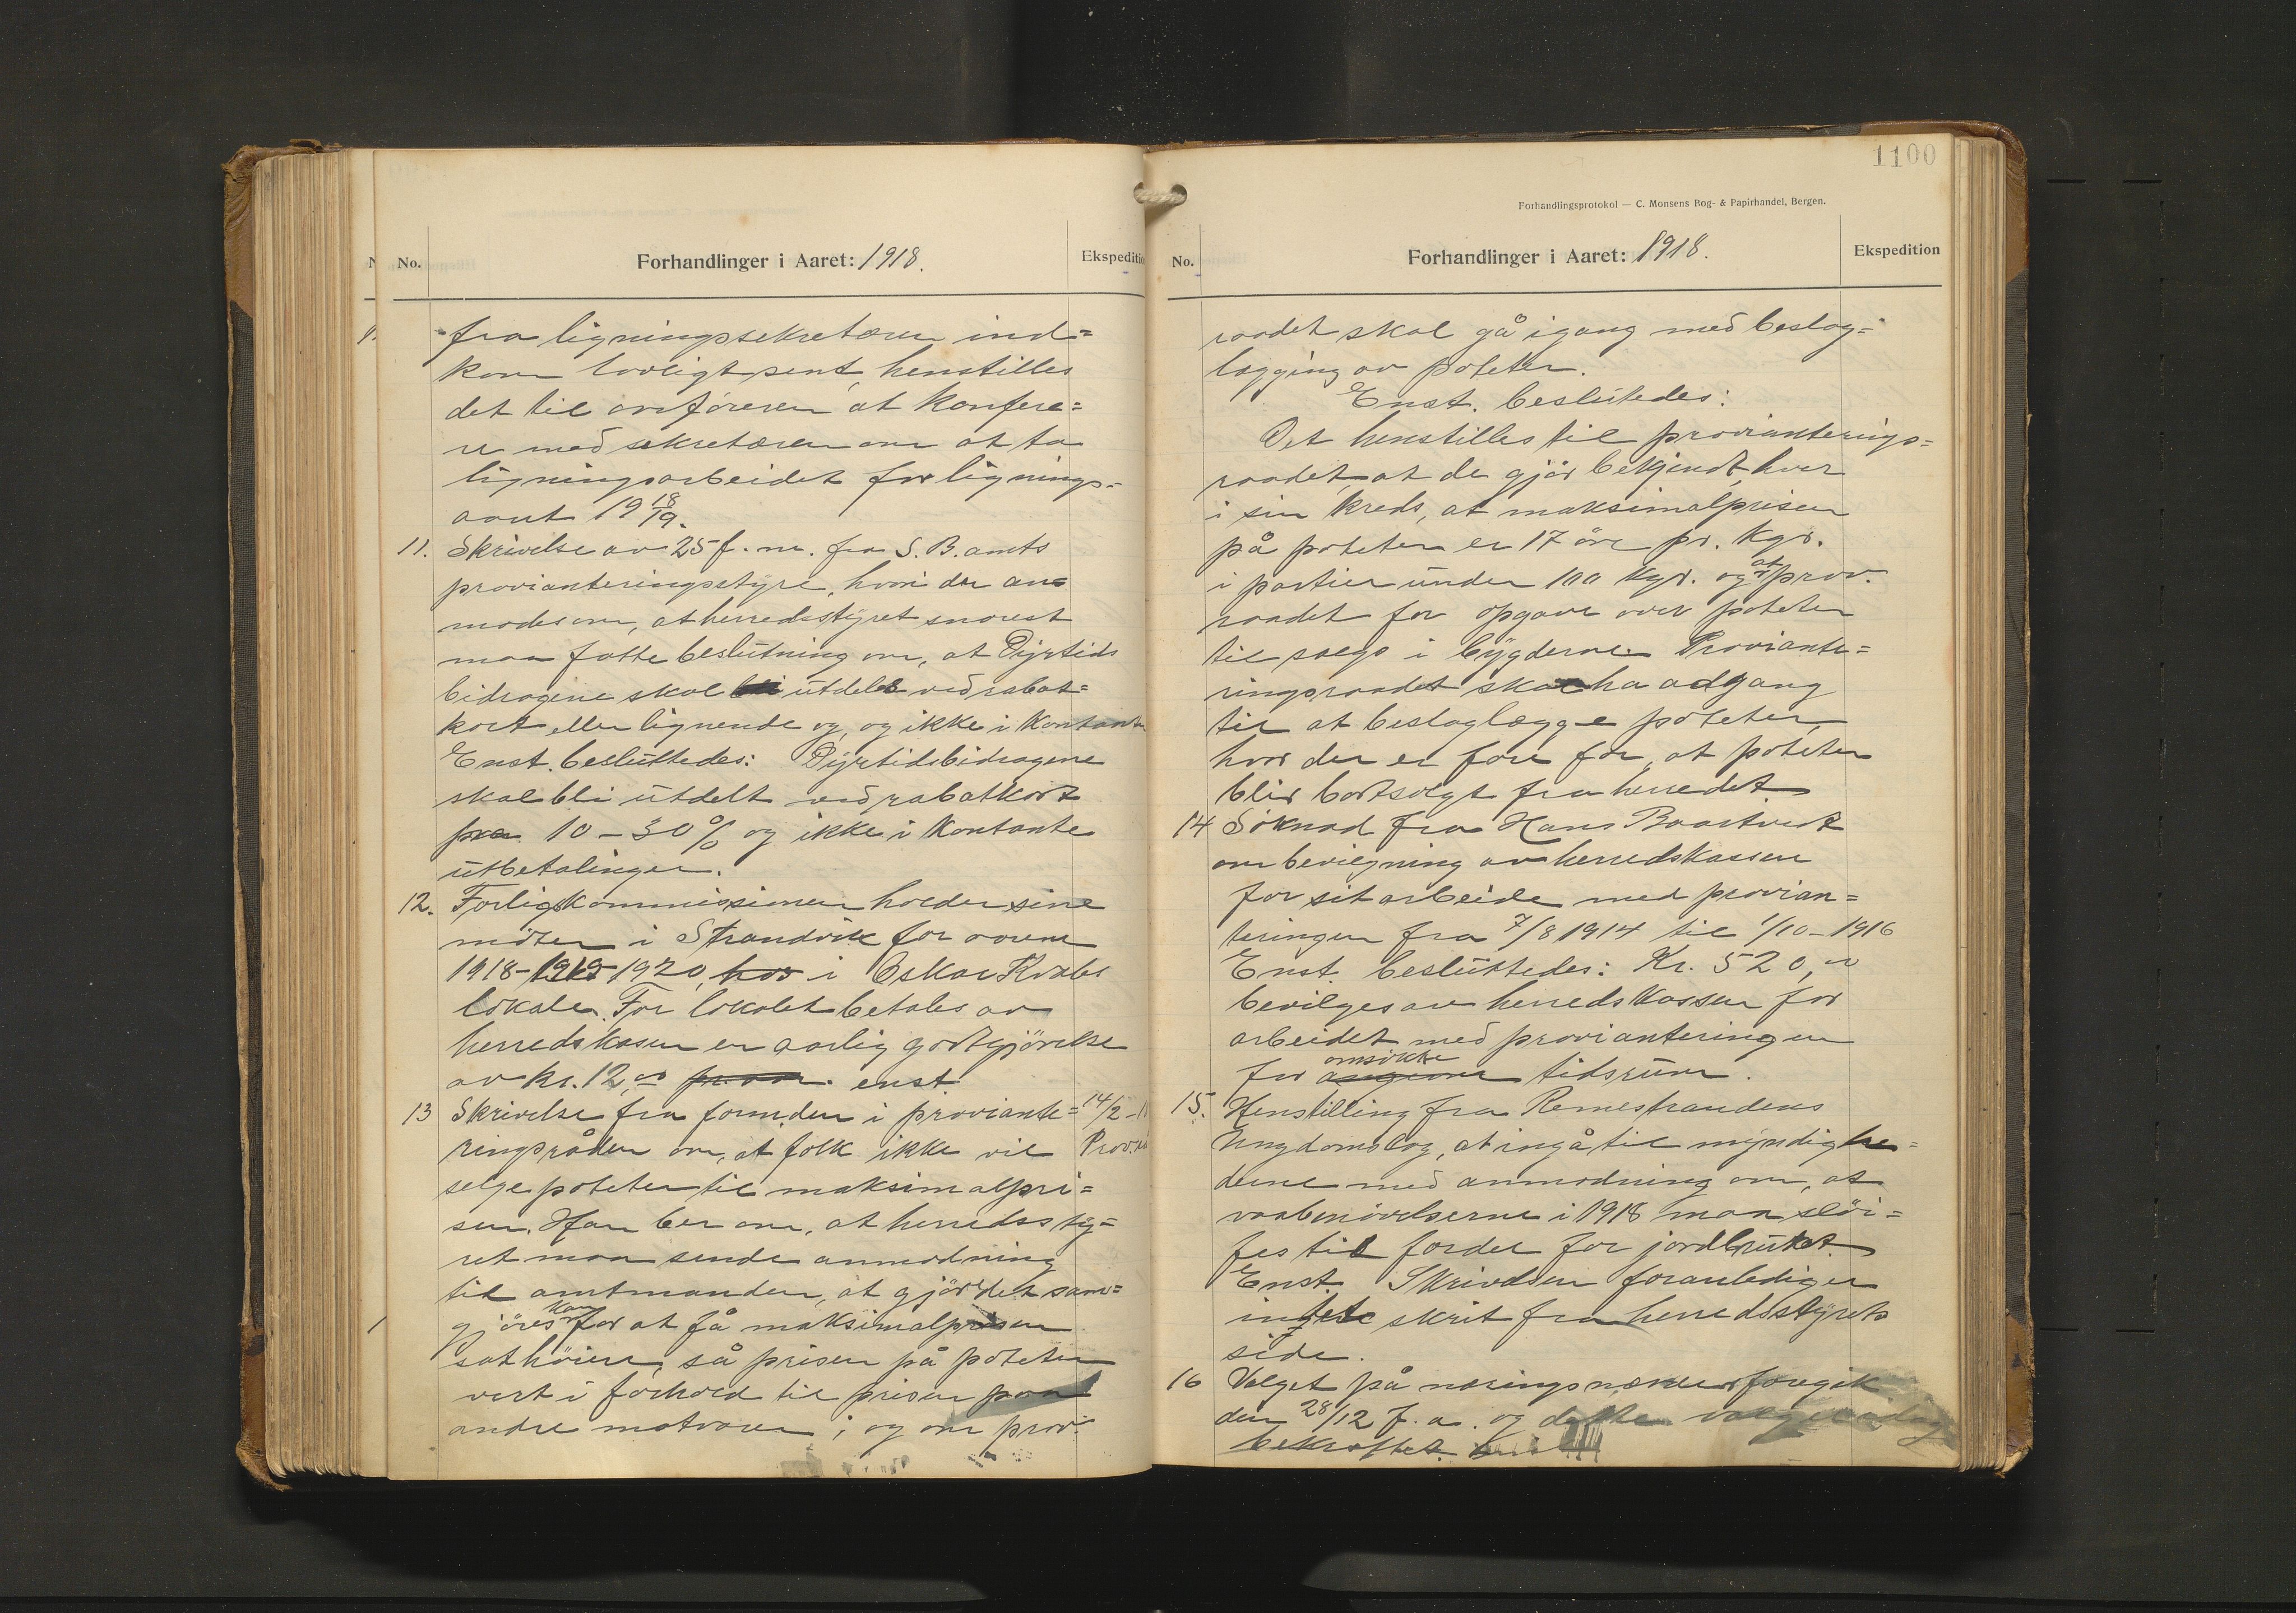 No.
Forhandlinger i Aaret: 1918.
Ekspeditio
fra ligningssekretæren ind=
kom lovligt sent, henstilles
det til ordföreren at konfere=
re med sekretæren om at ta
ligningsarbeidet for lignings=
aaret 19 18/19.
11. Skrivelse av 25 f. m. fra S. B. amts
provianteringsstyre, hvori der an=
modes om, at herredsstyret snarest
maa fatte beslutning om, at Dyrtids
bidragene skal bli utdelt ved rabat=
kort eller lignende og, og ikke i kontant
Enst. besluttedes: Dyrtidsbidragene
skal bli utdelt ved rabatkort
paa 10 - 30 % og ikke i kontante
utbetalinger.
12. Forligskommissionen holder sine
möter i Strandvik for aarene
1918-1919 1920, hos i Oskar Kvales
lokale. For lokalet betales av
herredskassen en aarlig godtgjörelse
av kr. 12,00 enst.
13 Skrivelse fra formden i proviante= 14/2-1
ringsråden om, at folk ikke vil Prov.
selge poteter til maksimalpri=
sen. Han ber om, at herredssty=
ret maa sende anmodning
til amtmanden, at gjör det som=
gjöres kan for at få maksimalprisen
sat höiere, så prisen på poteter
vert i forhold til prisen paa
andre matvarer; og om prov.
1100
Forhandlingsprotokol — C. Monsens Bog- & Papirhandel, Bergen.
No.
Forhandlinger i Aaret: 1918.
Ekspedition
raadet skal gå igang med beslag=
lægging av poteter.
Enst. beslutedes:
Det henstilles til provianterings=
raadet, at de gjör bekjendt, hver
i sin kreds, at maksimalprisen
på poteter er 17 öre pr. kgr.
i partier under 100 kgr. og at prov.
raadet får opgave over poteter
til salgs i bygderne. Proviante=
ringsraadet skal ha adgang
til at beslaglægge poteter,
hvor der er fare for, at poteter
blir bortsolgt fra herredet.
14 Söknad fra Hans Baartvedt
om bevilgning av herredskassen
for sit arbeide med provian=
teringen fra 7/8 1914 til 1/10-1916
Enst. besluttedes: Kr. 520,00
bevilges av herredskassen for
arbeidet med provianteringen
for omsökte tidsrum.
15. Henstilling fra Remestrandens
Ungdomslag, at ingå til myndighe=
derne med anmodning om, at
vaabenövelserne i 1918 maa slöi=
fes til fordel for jordbruket.
Enst. Skrivelsen foranlediger
intet skrit fra herredsstyrets
side.
16 Valget på næringsnævnder foregik
den 28/12 f. a. og dette valg
bekræftet.